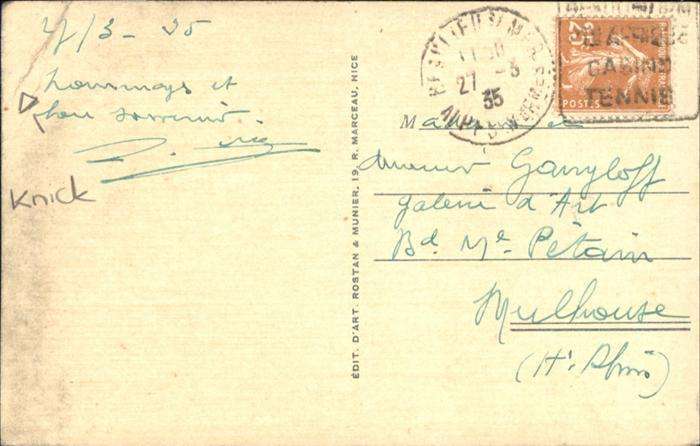 hommages et
bon souvenir
Knick
ÉDIT. D'ART. ROSTAN & MUNIER, 19, R. MARCEAU, NICE
BEAULIEU S/ MER
27 -3
35
ALPES MARMES
CASINO
TENNIS
POSTES
M
Gavryloff
galerie d'Art
Bd. Me Pétain
Mulhouse
(Ht. Rhin)